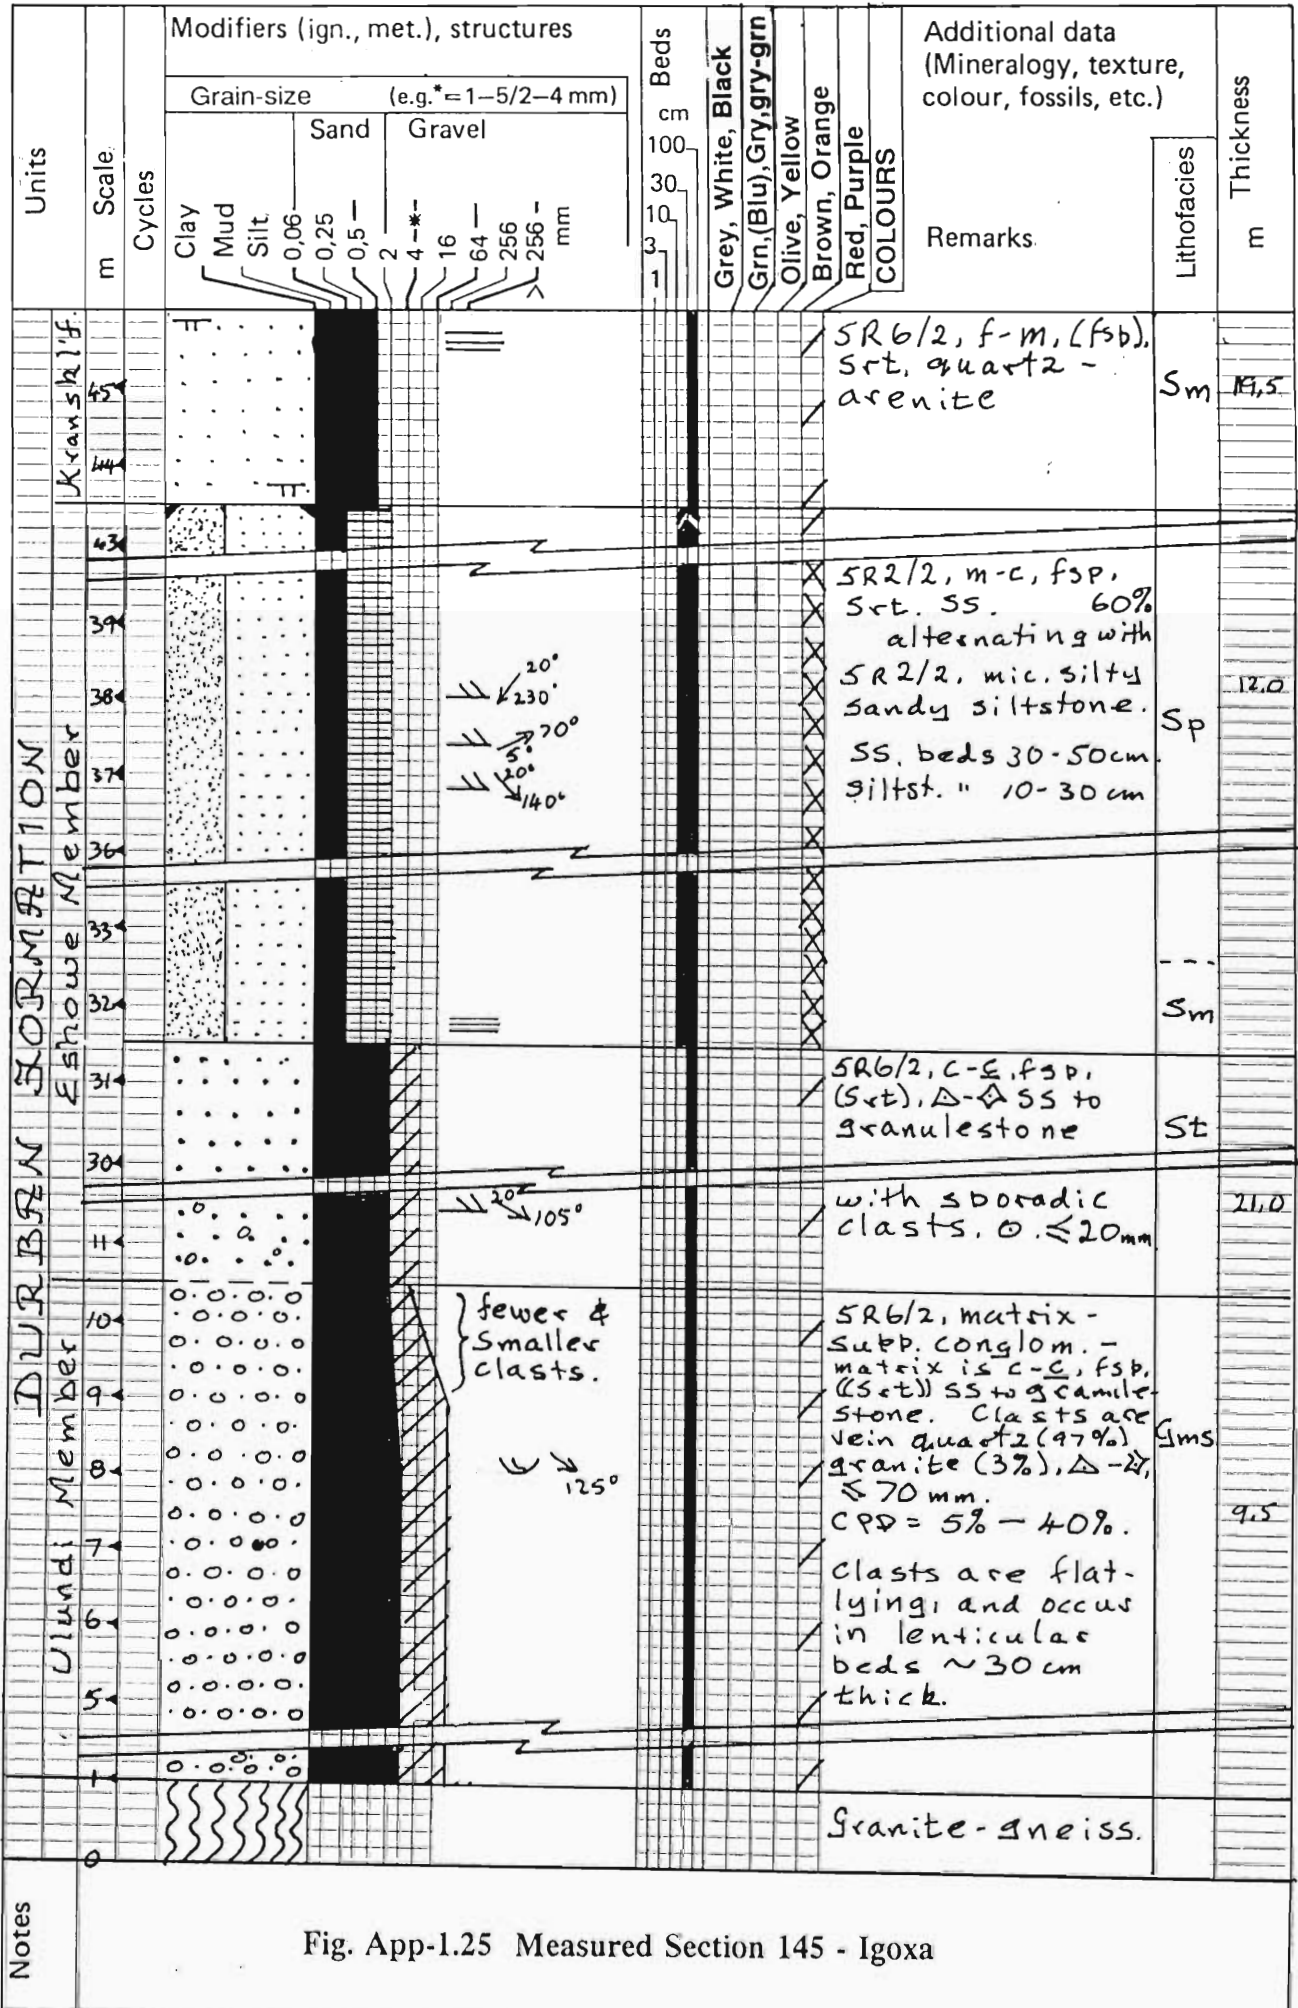 Units
Scale
m
Cycles
Modifiers (ign., met.), structures
Grain-size (e.g.*=1–5/2–4 mm)
Sand Gravel
Clay
Mud
Silt
0,06
0,25
0,5
2
4-*-
16
64
256
>256
mm
Beds
cm
100
30
10
3
1
Grey, White, Black
Grn,(Blu),Gry,gry-grn
Olive, Yellow
Brown, Orange
Red, Purple
COLOURS
Additional data
(Mineralogy, texture,
colour, fossils, etc.)
Remarks
Lithofacies
Thickness
m
DURBAN FORMATION
Kranskl'f.
Eshowe Member
Ulundi Member
45
44
43
39
38
37
36
33
32
31
30
11
10
9
8
7
6
5
1
0
5R6/2, f-m, (fsb),
Srt, quartz-
arenite
Sm
19,5
5R2/2, m-c, fsp,
Srt. SS. 60%
alternating with
5R2/2, mic. silty
sandy siltstone.
SS. beds 30-50cm.
siltst. " 10-30 cm
Sp
12,0
20°
230°
70°
5°
20°
140°
Sm
5R6/2, c-c, fsp,
(Srt), △-◇ SS to
granulestone
St
20°
105°
with sboradic
clasts. ⊙. ≤20mm
21,0
fewer &
Smaller
clasts.
125°
5R6/2, matrix-
supp. conglom. -
matrix is c-c, fsp,
((Srt)) SS to granule-
stone. Clasts are
vein quartz (97%)
granite (3%), △-
≤ 70 mm.
CPD = 5% - 40%.
Clasts are flat-
lying, and occur
in lenticular
beds ~30 cm
thick.
Gms
9,5
Granite-gneiss.
Notes
Fig. App-1.25 Measured Section 145 - Igoxa